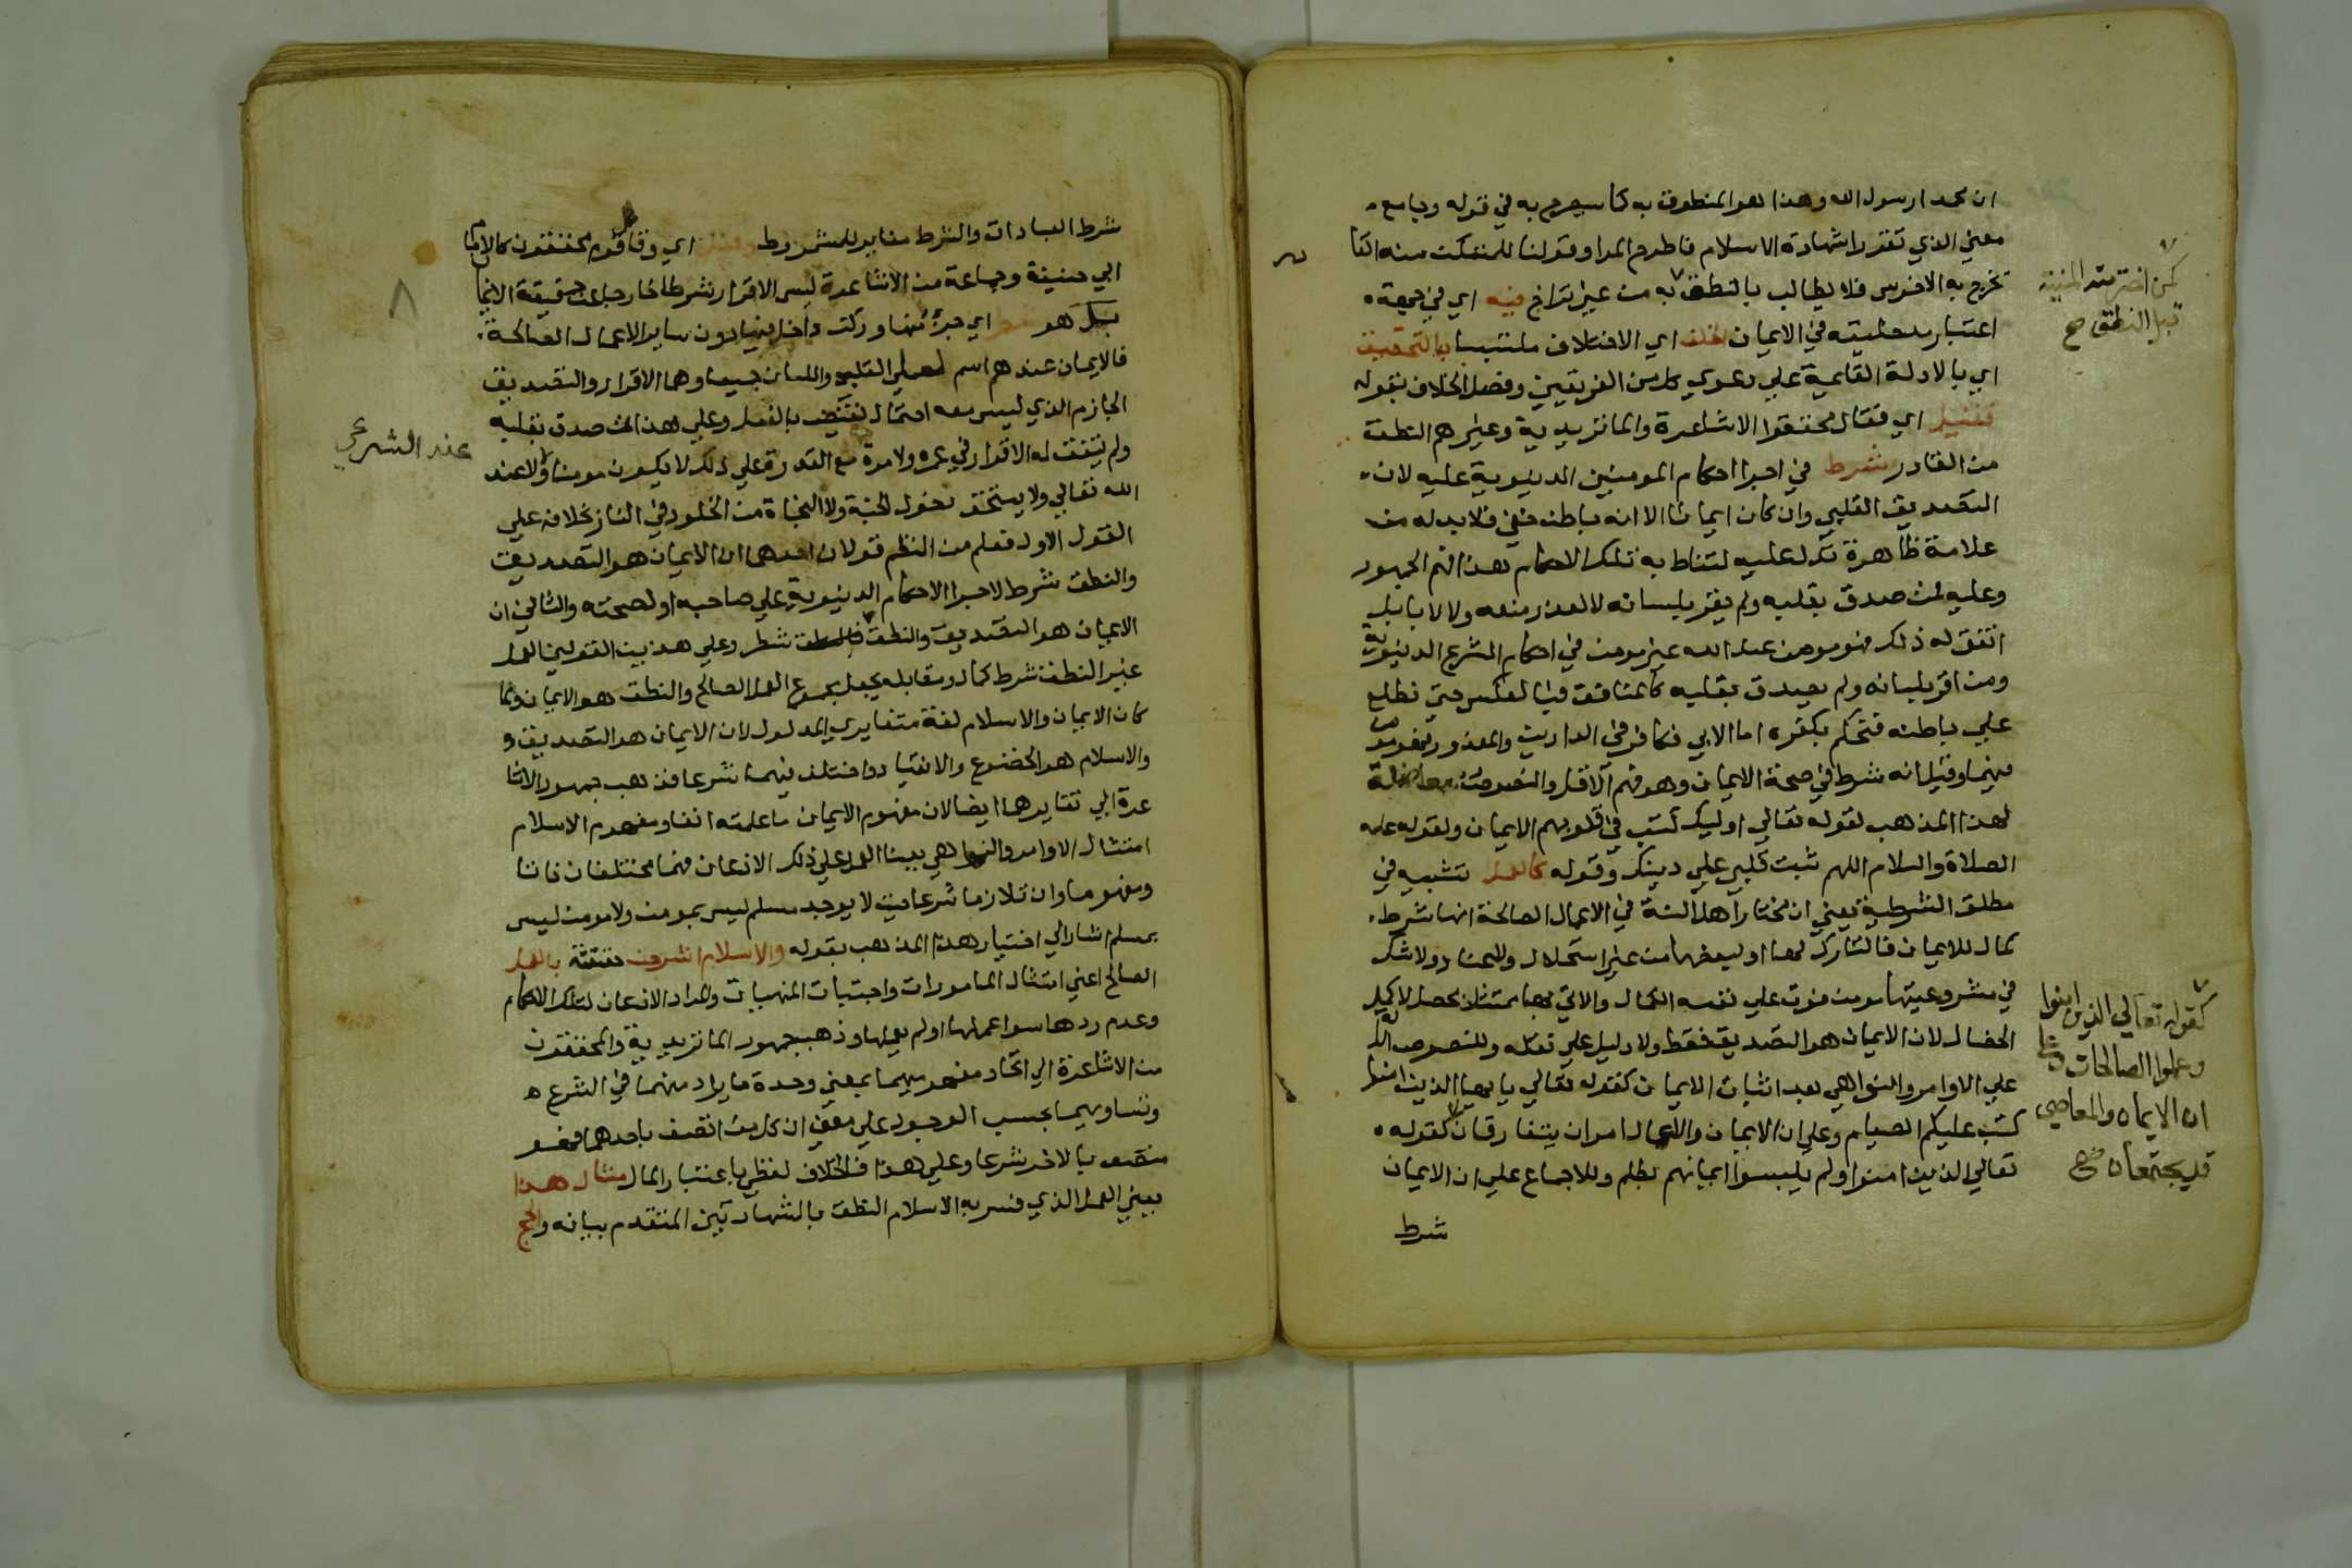 ان محمدا رسول الله وهذا هو المنطوق به كما سيصرح به في قوله وجامع
معني الذي تقررا شهادة الاسلام فاطرح المرا وقولنا للمتمكن منه القا
تخرج به الاخرس فلا يطالب بالنطق به من غير تراخ فيه اي في جهة
اعتبار مدخليته في الايمان الخلف اي الاختلاف ملتبسا بالتحقيق
اي بالادلة القايمة علي دعوي كل من الفريقين وفصل الخلاف بقوله
فقيل اي فقال محققوا الاشاعرة والماتريدية وغيرهم النطق
من القادر شرط في اجرا احكام المومنين الدنيوية عليه لان
التصديق القلبي وان كان ايمانا الا انه باطن خفي فلابد له من
علامة ظاهرة تدل عليه لتناط به تلك الاحكام هذا فهم الجمهور
وعليه فمن صدق بقلبه ولم يقر بلسانه لا لعذر منعه ولا لابا بل
اتفق له ذلك فهو مومن عند الله غير مومن في احكام الشرع الدنيوية
ومن اقر بلسانه ولم يصدق بقلبه كالمنافق فبالعكس حتي نطلع
علي باطنه فنحكم بكفره اما الابي فكافر في الدارين والمعذور مومن
فيهما وقيل انه شرط في صحة الايمان وهو فهم الاقل والنصوص معاضدة
لهذا المذهب لقوله تعالي اوليك كتب في قلوبهم الايمان ولقوله عليه
الصلاة والسلام اللهم ثبت قلبي علي دينك وقوله كالعمل تشبيه في
مطلق الشرطية يعني ان مختار اهل السنة في الاعمال الصالحة انها شرط
كمال للايمان فالتارك لها او لبعضها من غير استحلال ولا عناد ولا شك
في مشروعيتها مومن فوت علي نفسه الكمال والاتي بها ممتثلا محصل لاكمل
الخصال لان الايمان هو التصديق فقط ولا دليل علي نقله وللنصوص الدالة
علي الاوامر والنواهي بعد اثبات الايمان كقوله تعالي يا ايها الذين امنوا
كتب عليكم الصيام وعلي ان الايمان والاعمال امران يتفارقان كقوله
تعالي الذين امنوا ولم يلبسوا ايمانهم بظلم وللاجماع علي ان الايمان
شرط
كمن اخترمته المنية
قبل النطق صح
كقوله تعالي الذين امنوا
وعملوا الصالحات وعلي
ان الايمان والمعاصي
قد يجتمعان صح
شرط العبادات والشرط مغاير للمشروط وقيل اي وقال قوم محققون كالامام
ابي حنيفة وجماعة من الاشاعرة ليس الاقرار شرطا خارجا عن حقيقة الايمان
بل هو شطر اي جزء منها وركن داخل فيها دون ساير الاعمال الصالحة
فالايمان عندهم اسم لعملي القلب واللسان جميعا وهما الاقرار والتصديق
الجازم الذي ليس معه احتمال نقيض بالفعل وعلي هذا فمن صدق بقلبه
ولم يتفق له الاقرار في عمره ولا مرة مع القدرة علي ذلك لا يكون مومنا ولا عند
الله تعالي ولا يستحق دخول الجنة ولا النجاة من الخلود في النار بخلافه علي
القول الاول فعلم من النظم قولان احدهما ان الايمان هو التصديق
والنطق شرط لاجرا الاحكام الدنيوية علي صاحبه او لصحته والثاني ان
الايمان هو التصديق والنطق فالنطق شطر وعلي هذين القولين العمل
غير النطق شرط كمال ومقابله يجعل مجموع العمل الصالح والنطق هو الايمان ولما
كان الايمان والاسلام لغة متغايري المدلول لان الايمان هو التصديق و
والاسلام هو الخضوع والانقياد واختلف فيهما شرعا فذهب جمهور الاشا
عرة الي تغايرهما ايضا لان مفهوم الايمان ما علمته انفا ومفهوم الاسلام
امتثال الاوامر والنواهي ببنا العمل علي ذلك الاذعان فهما مختلفان ذاتا
ومفهوما وان تلازما شرعا حيث لا يوجد مسلم ليس بمومن ولا مومن ليس
بمسلم اشار الي اختيار هذا المذهب بقوله والاسلام اشرحن حقيقته بالعمل
الصالح اعني امتثال المامورات واجتناب المنهيات والمراد الاذعان لتلك الاحكام
وعدم ردها سوا عملها او لم يعملها وذهب جمهور الماتريدية والمحققون
من الاشاعرة الي اتحاد مفهوميهما بمعني وحدة ما يراد منهما في الشرع
وتساويهما بحسب الوجود علي معني ان كل من اتصف باحدهما فهو
متصف بالاخر شرعا وعلي هذا فالخلاف لفظي باعتبار المال مثال هذا
يعني العمل الذي فسر به الاسلام النطق بالشهادتين المتقدم بيانه والحج
عند الشرعي
٨